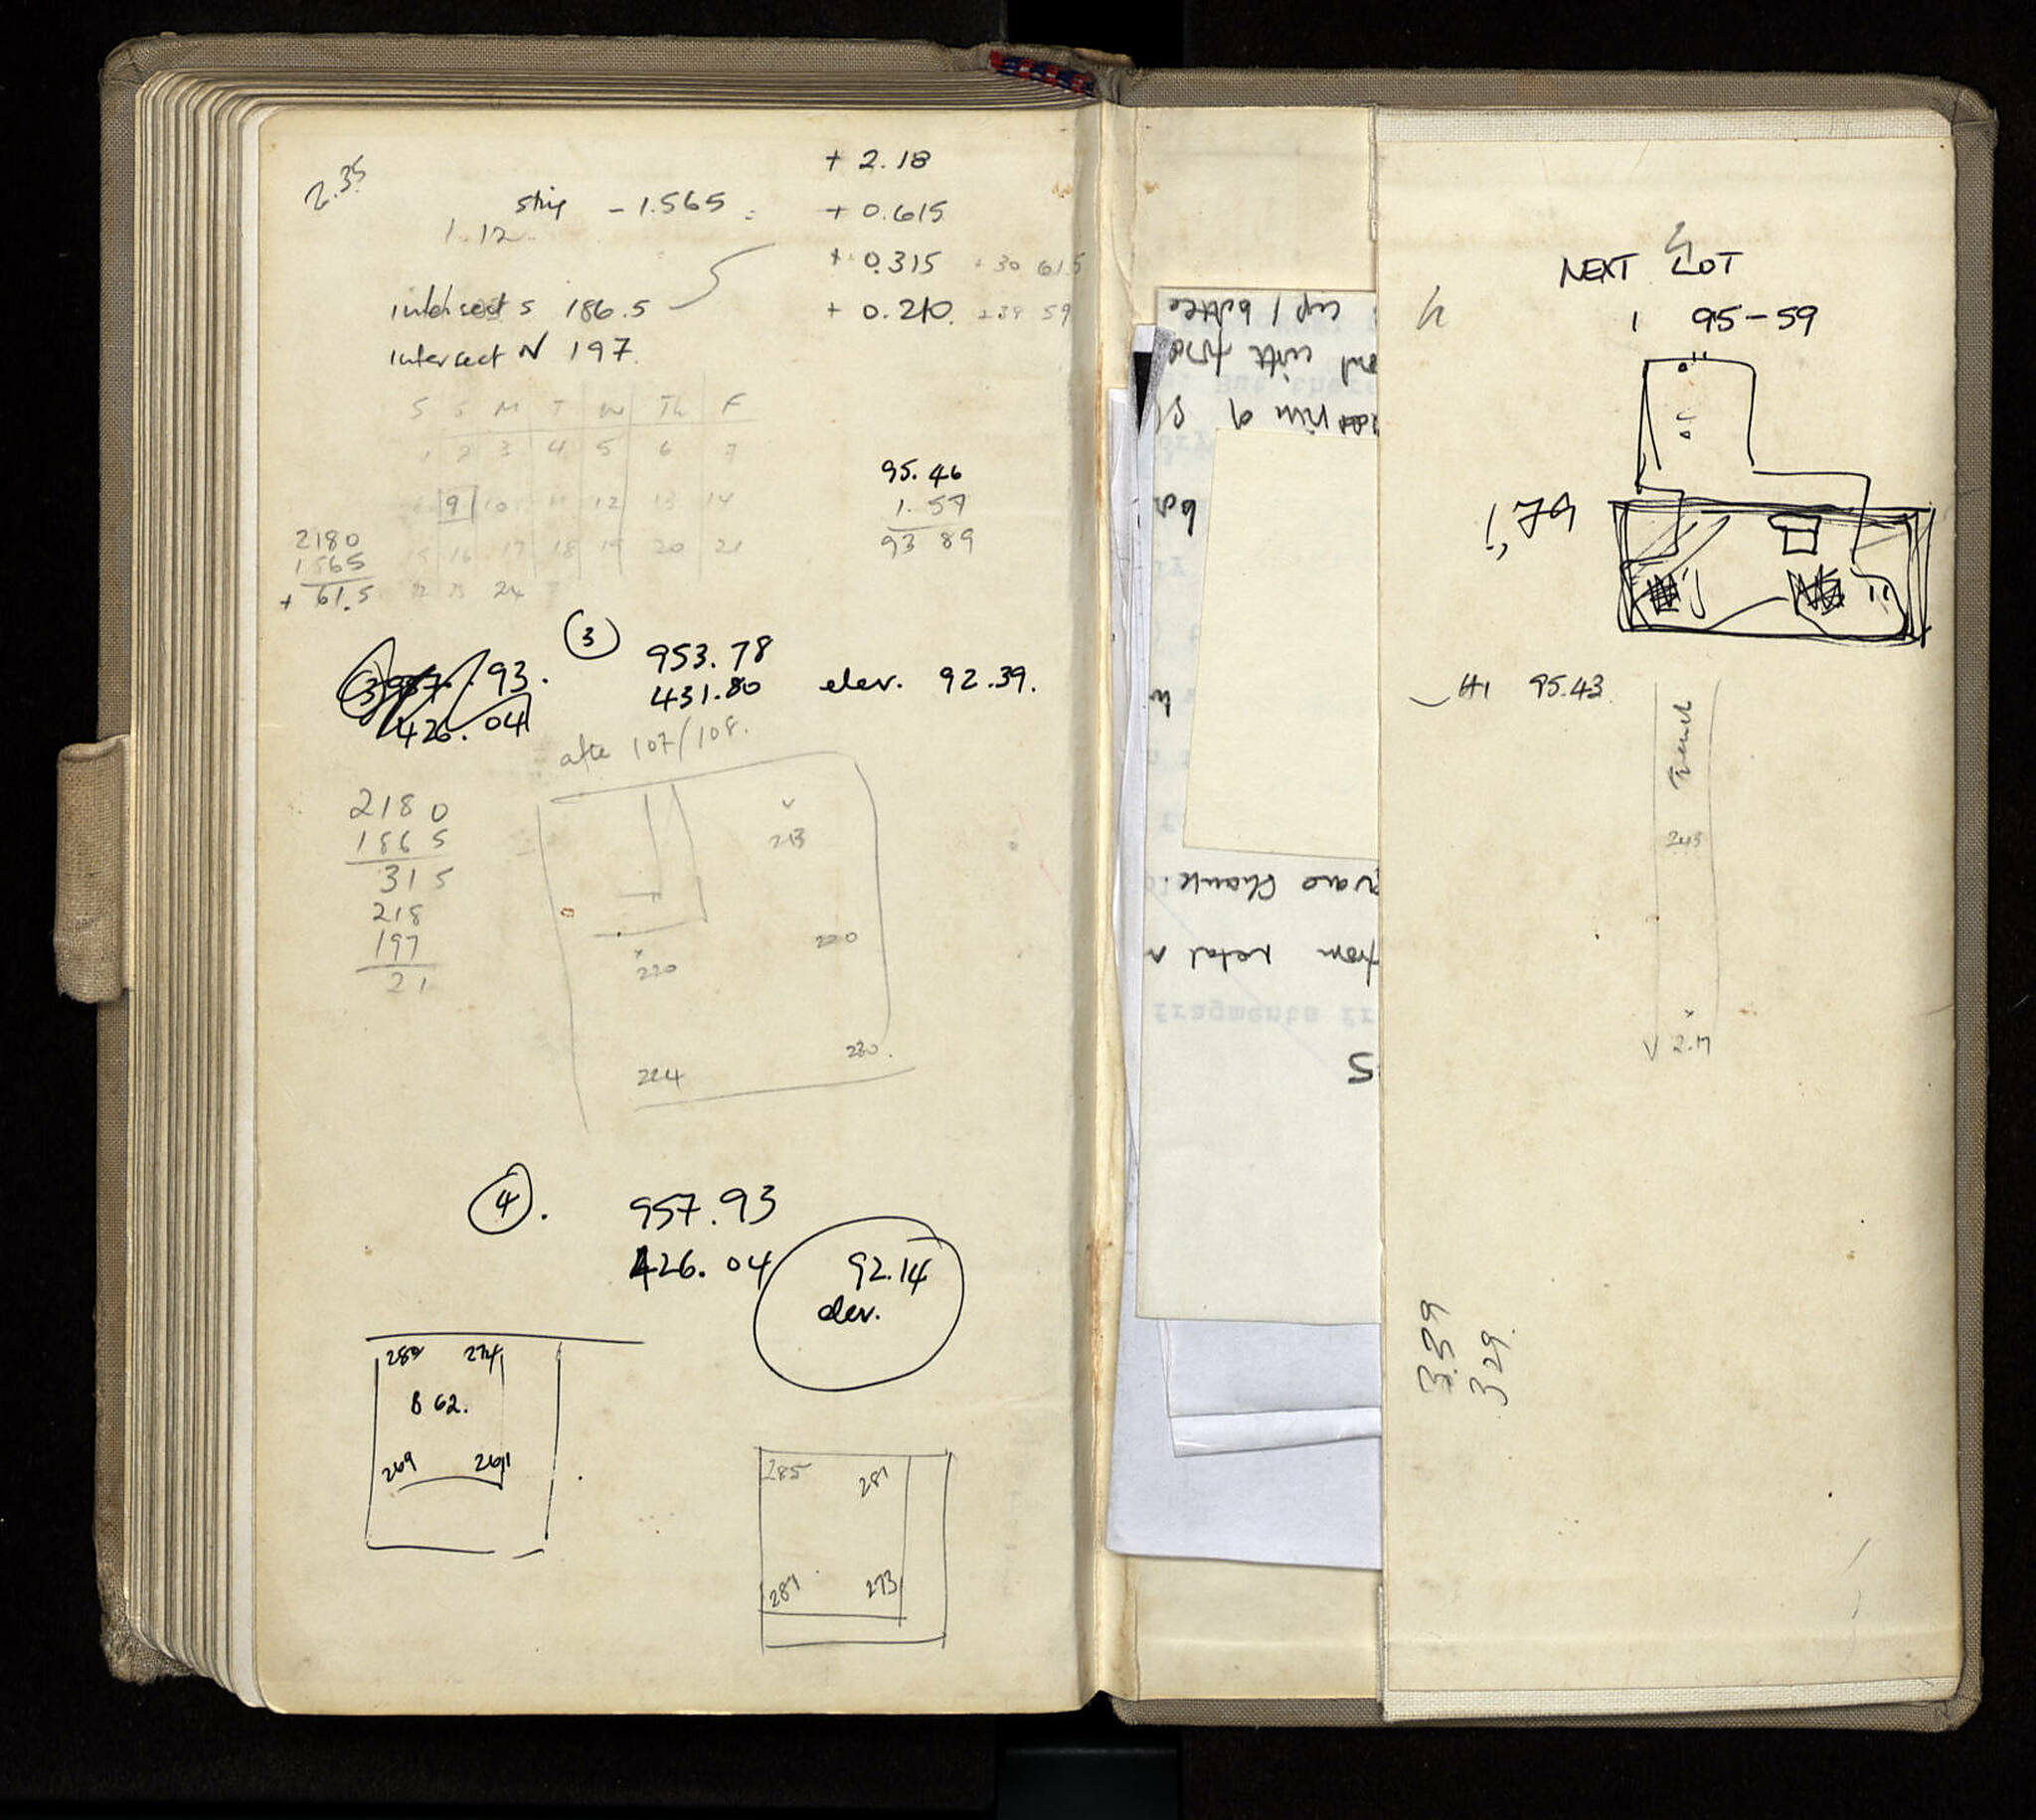 2.35
+ 2.18
- 1.565
+ 0.615
1.12
+ 0.315 + 30 61.5
intersect S 186.5
+ 0.210. 59
intersect N 197.
S S M T W Th F
1 2 3 4 5 6 7
9 10 11 12 13 14
15 16 17 18 19 20 21
24
95.46
1.57
93 89
2180
1565
+ 61.5
3
93.
426.04
3
953.78
431.80
elev. 92.39.
after 107/108.
2180
1865
315
218
197
21
213
220
220
230.
224
4.
957.93
426.04
92.14
elev.
274
B 62.
269
285
281
287
273
cup / bottle
with
rim of
chank.
from
fragments
S
NEXT LOT
1 95-59
1,79
HI 95.43
Trench
243
2.17
3.39
329.